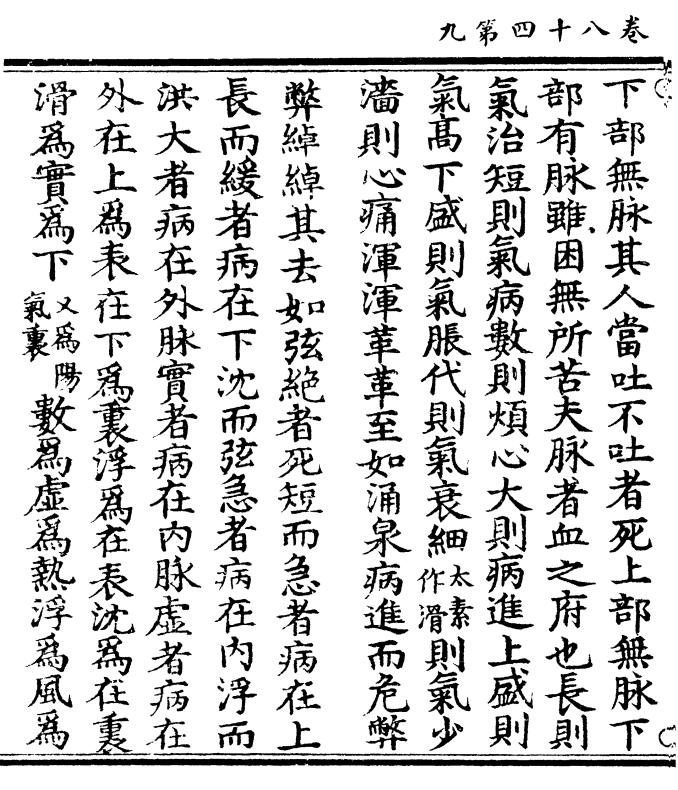 卷八十四第九
下部無脉其人當吐不吐者死上部無脉下
部有脉雖困無所苦夫脉者血之府也長則
氣治短則氣病數則煩心大則病進上盛則
氣髙下盛則氣脹代則氣衰細太素作滑則氣少
濇則心痛渾渾革革至如涌泉病進而危弊
弊綽綽其去如弦絶者死短而急者病在上
長而緩者病在下沈而弦急者病在内浮而
洪大者病在外脉實者病在内脉虛者病在
外在上爲表在下爲裏浮爲在表沈爲在裏
滑爲實爲下又爲陽氣裏數爲虛爲熱浮爲風爲